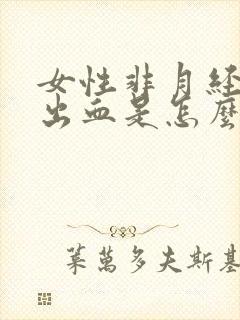 女性非月经
出血是怎麼
葉萬多夫斯基